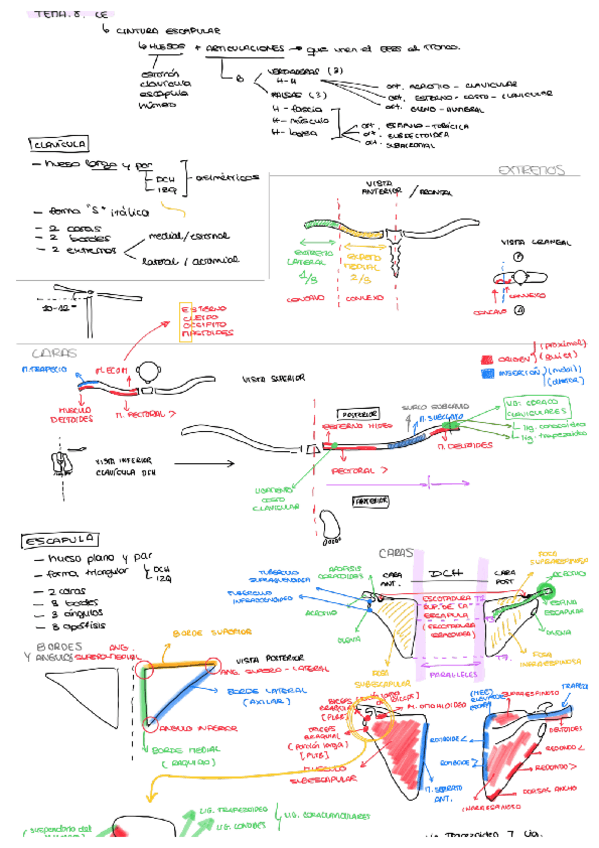 TEMA.8. CE
↳ CINTURA ESCAPULAR
↳ HUESOS + ARTICULACIONES → que unen el EESS al TRONCO.
esternón
clavícula
escápula
húmero
VERDADERAS (3)
H-H
FALSAS (3)
H - fascia
H - músculo
H - bolsa
art. ACROMIO - CLAVICULAR
art. ESTERNO - COSTO - CLAVICULAR
art. GLENO - HUMERAL
art. SUBDELTOIDEA
art. SUBACROMIAL
CLAVÍCULA
- hueso largo y par
DCH
IZQ
asimétricos
- forma "S" itálica
- 2 caras
- 2 bordes
- 2 extremos
medial / esternal
lateral / acromial
EXTREMOS
VISTA
ANTERIOR / FRONTAL
EXTREMO
LATERAL
1/3
EXTREMO
MEDIAL
2/3
CÓNCAVO
CONVEXO
VISTA CRANEAL
P
CONVEXO
CÓNCAVO
A
10-12°
ESTERNO
CLEIDO
OCCIPITO
MASTOIDEO
CARAS
M.TRAPECIO
M.ECOM
MÚSCULO
DELTOIDES
M. PECTORAL >
VISTA SUPERIOR
ORIGEN
(proximal)
INSERCIÓN
(móvil)
VISTA INFERIOR
CLAVÍCULA DCH
POSTERIOR
ESTERNO HIOIDEO
SURCO SUBCLAVIO
M. SUBCLAVIO
M. DELTOIDES
PECTORAL >
LIG. CORACO
CLAVICULARES
lig. conoideo
lig. trapezoideo
LIGAMENTO
COSTO
CLAVICULAR
ANTERIOR
ESCÁPULA
- hueso plano y par
DCH
IZQ
- forma triangular
- 2 caras
- 3 bordes
- 3 ángulos
- 3 apófisis
BORDES
Y ÁNGULOS
ANG.
SUPEROMEDIAL
BORDE SUPERIOR
VISTA POSTERIOR
ANG. SUPERO - LATERAL
BORDE LATERAL
(AXILAR)
ÁNGULO INFERIOR
BORDE MEDIAL
(RAQUÍDEO)
CARAS
TUBÉRCULO
SUPRAGLENOIDEO
TUBÉRCULO
INFRAGLENOIDEO
APÓFISIS
CORACOIDES
ACROMIO
GLENA
CARA
ANT.
DCH
CARA
POST
ESCOTADURA
SUP. DE LA
ESCÁPULA
FOSA
SUPRAESPINOSA
ACROMIO
ESPINA
ESCAPULAR
GLENA
FOSA
INFRAESPINOSA
FOSA
SUBESCAPULAR
PARALELES
M. OMOHIOIDEO
BÍCEPS
BRAQUIAL
BRAQUIAL
(porción larga)
MÚSCULO
SUBESCAPULAR
M. SERRATO
ANT.
ROMBOIDE <
ROMBOIDE >
SUPRAESPINOSO
TRAPECIO
DELTOIDES
REDONDO <
REDONDO >
DORSAL ANCHO
INFRAESPINOSO
LIG. TRAPEZOIDEO
LIG. CONOIDEO
LIG. CORACOCLAVICULARES